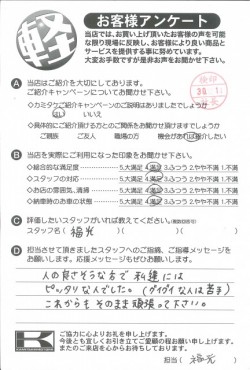 軽
お客様アンケート
当店では、お買い上げ頂いたお客様の声を可能
な限り現場に反映し、お客様により良い商品と
サービスを提供する事に努めています。
大変お手数ですが是非お声をお聞かせ下さい。
A 当店はご紹介を大切にしております。
ご紹介キャンペーンについてお聞かせ下さい。
◇カミタケご紹介キャンペーンの説明はありましたでしょうか
はい いいえ
◇具体的にご紹介頂ける方との関係をお聞かせ頂けますでしょうか
ご親族 ご友人 職場の方 機会があれば紹介したい
B 当店を実際にご利用になった印象をお聞かせ下さい。
◇総合的な満足度 5.大満足 4.満足 3.ふつう 2.やや不満 1.不満
◇スタッフの対応 5.大満足 4.満足 3.ふつう 2.やや不満 1.不満
◇お店の雰囲気、清掃 5.大満足 4.満足 3.ふつう 2.やや不満 1.不満
◇納車時のお車の状態 5.大満足 4.満足 3.ふつう 2.やや不満 1.不満
C 評価したいスタッフがいれば教えてください。
スタッフ名( 福光 )( )( )
D 担当させて頂きましたスタッフへのご指摘、ご指導メッセージを
お願いします。応援メッセージもぜひお願いします。
人の良さそうな方で私達には
ピッタリな人でした。(グイグイな人は苦手)
これからもそのまま頑張って下さい。
K
ご協力に心よりお礼を申し上げます。
今後とも宜しくお引き立てご愛顧の程お願い申し上げます。
またのご来店を心からお待ちしております。
担当( 福光 )